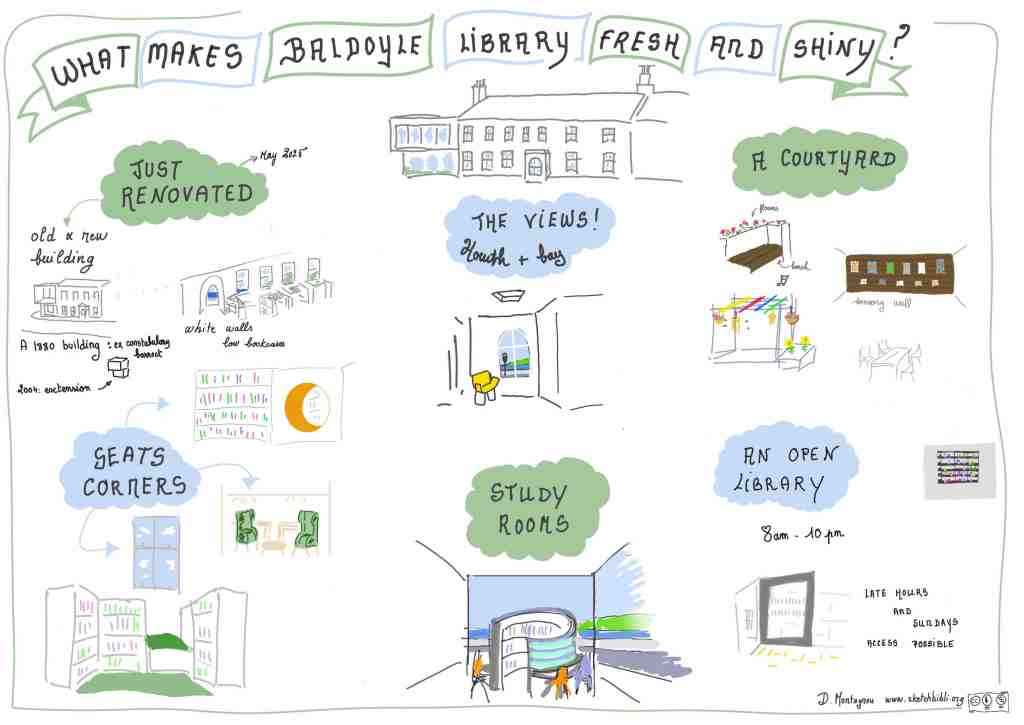 WHAT MAKES BALDOYLE LIBRARY FRESH AND SHINY ?
JUST
RENOVATED
May 2025
old & new
building
white walls
low bookcases
A 1880 building : ex constabulary
barract
2004: exctension
THE VIEWS!
Howth + bay
A COURTYARD
flowers
bench
sensory wall
SEATS
CORNERS
STUDY
ROOMS
AN OPEN
LIBRARY
8am - 10 pm
LATE HOURS
AND
SUNDAYS
ACCESS POSSIBLE
D. Montagnou www.sketchbibli.org